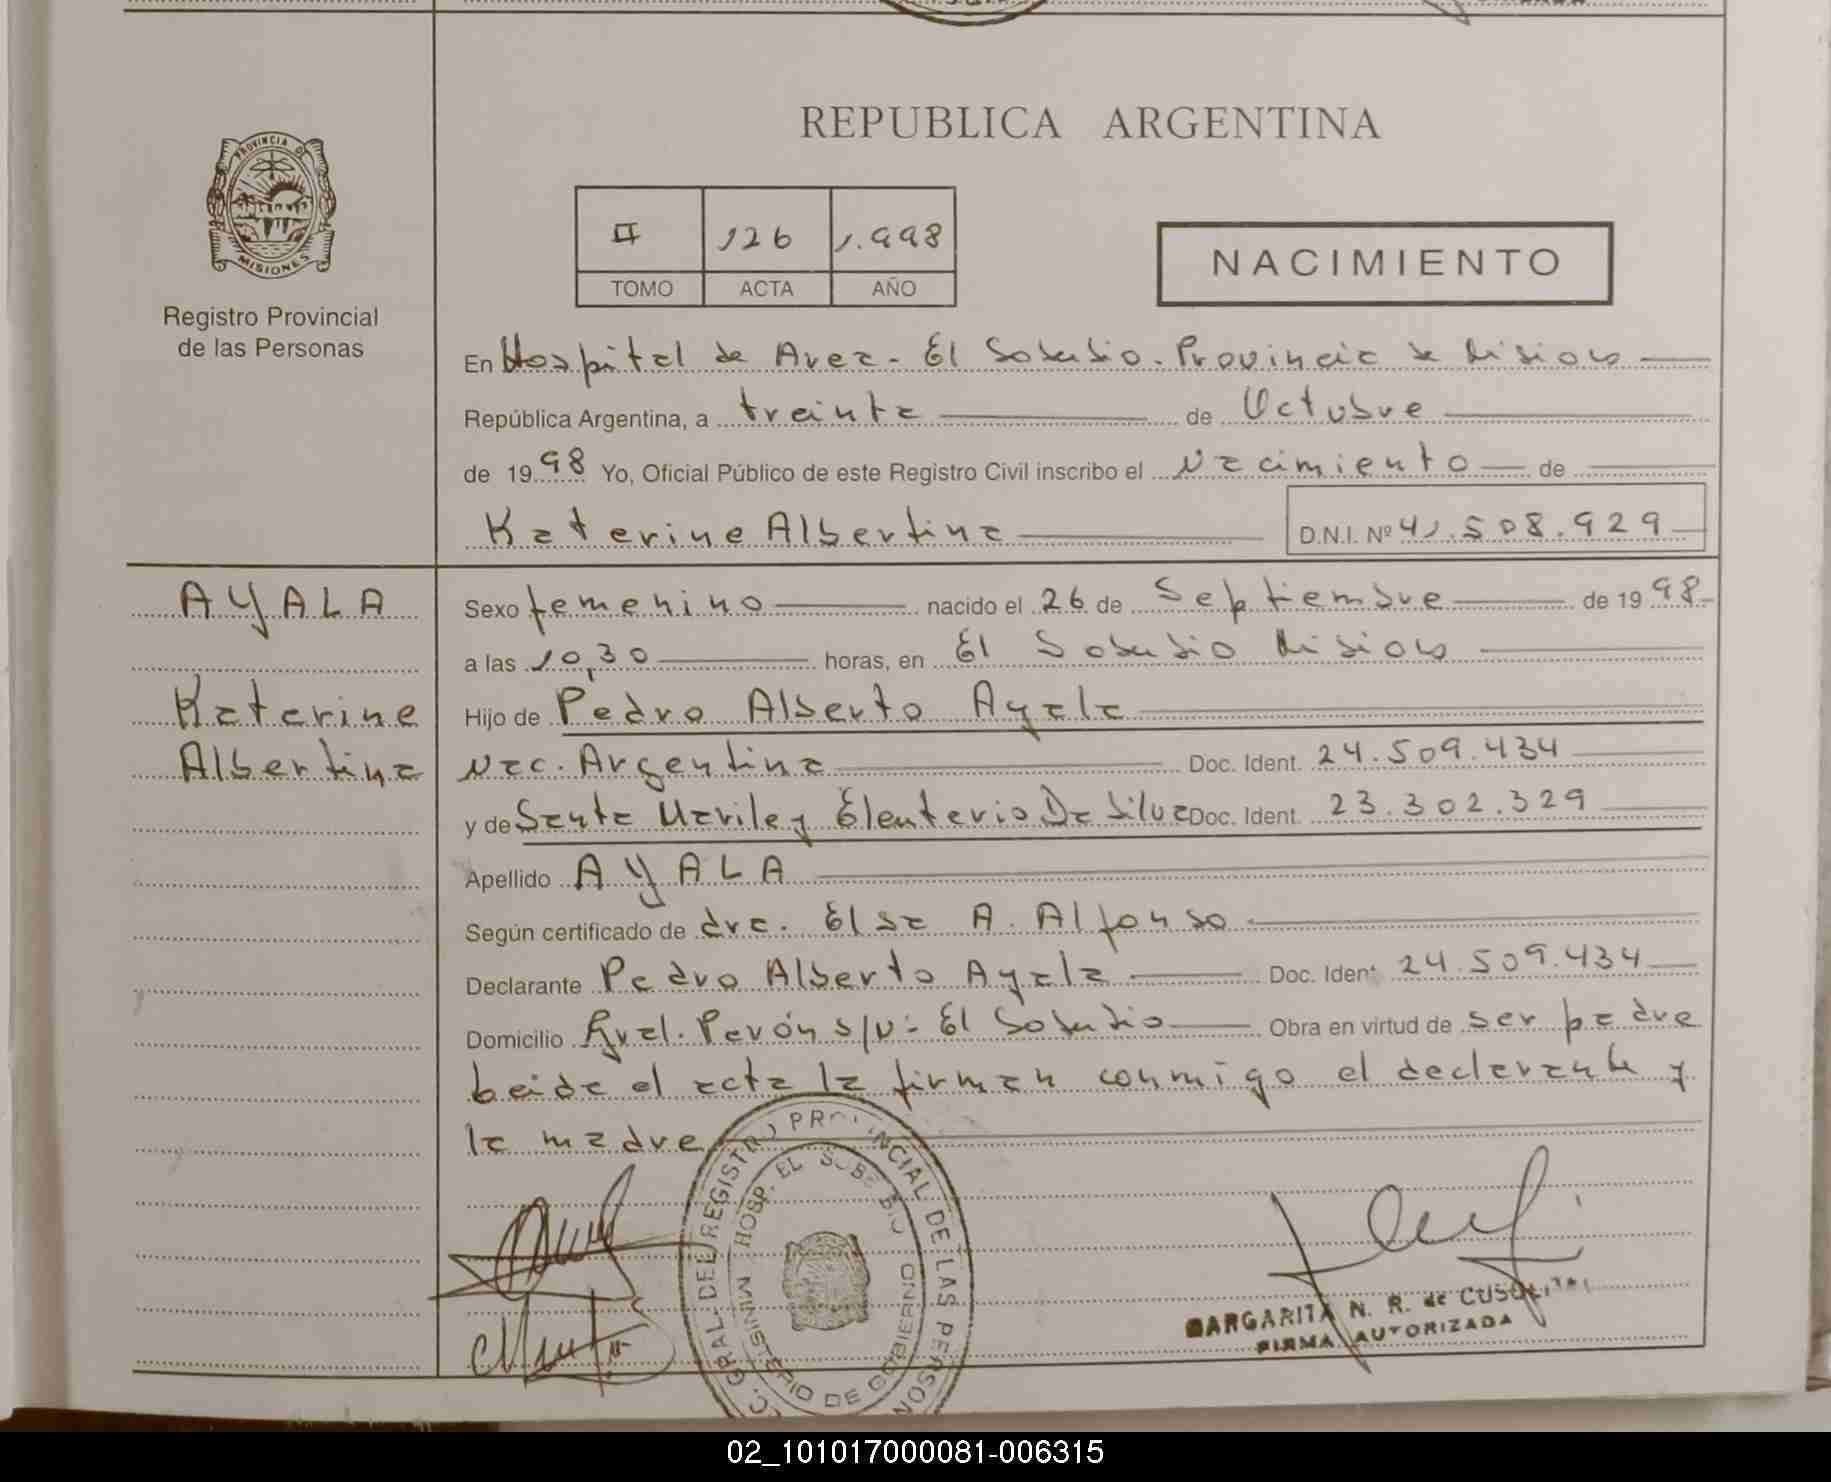 REPUBLICA ARGENTINA
PROVINCIA DE MISIONES
Registro Provincial
de las Personas
II 126 1.998
TOMO ACTA AÑO
NACIMIENTO
En Hospital de Area - El Soberbio - Provincia de Misiones
República Argentina, a treinta de Octubre
de 1998 Yo, Oficial Público de este Registro Civil inscribo el Nacimiento de
Katerine Albertina D.N.I. Nº 41.508.929
AYALA
Katerine
Albertina
Sexo femenino nacido el 26 de Septiembre de 1998
a las 10,30 horas, en El Soberbio Misiones
Hijo de Pedro Alberto Ayala
Nac. Argentina Doc. Ident. 24.509.434
y de Santa Mariley Eleuterio Da Silva Doc. Ident. 23.302.329
Apellido AYALA
Según certificado de dra. Elsa A. Alfonso
Declarante Pedro Alberto Ayala Doc. Ident. 24.509.434
Domicilio Gral. Perón s/n: El Soberbio Obra en virtud de ser padre
leida el acta la firman conmigo el declarante y
la madre
GRAL. DEL REGISTRO PROVINCIAL DE LAS PERSON
HOSP. EL SOBERBIO
MINISTERIO DE GOBIERNO
MARGARITA N. R. de
FIRMA AUTORIZADA
02_101017000081-006315